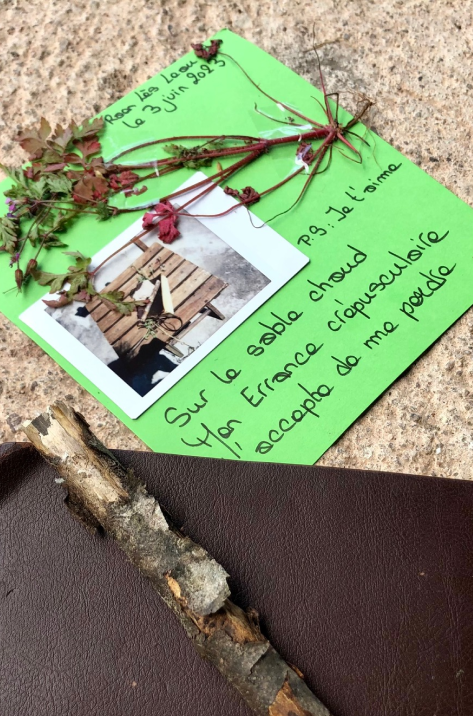 le 3 juin 2023
P.S : Je t'aime
Sur le sable chaud
Mon Errance crépusculaire
accepte de me perdre